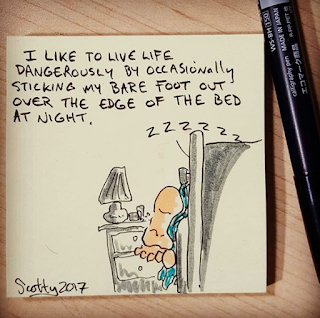 I LIKE TO LIVE LIFE
DANGEROUSLY BY OCCASIONALLY
STICKING MY BARE FOOT OUT
OVER THE EDGE OF THE BED
AT NIGHT.
Z Z Z Z Z Z
Scotty 2017
MADE IN JAPAN
calligraphy pen